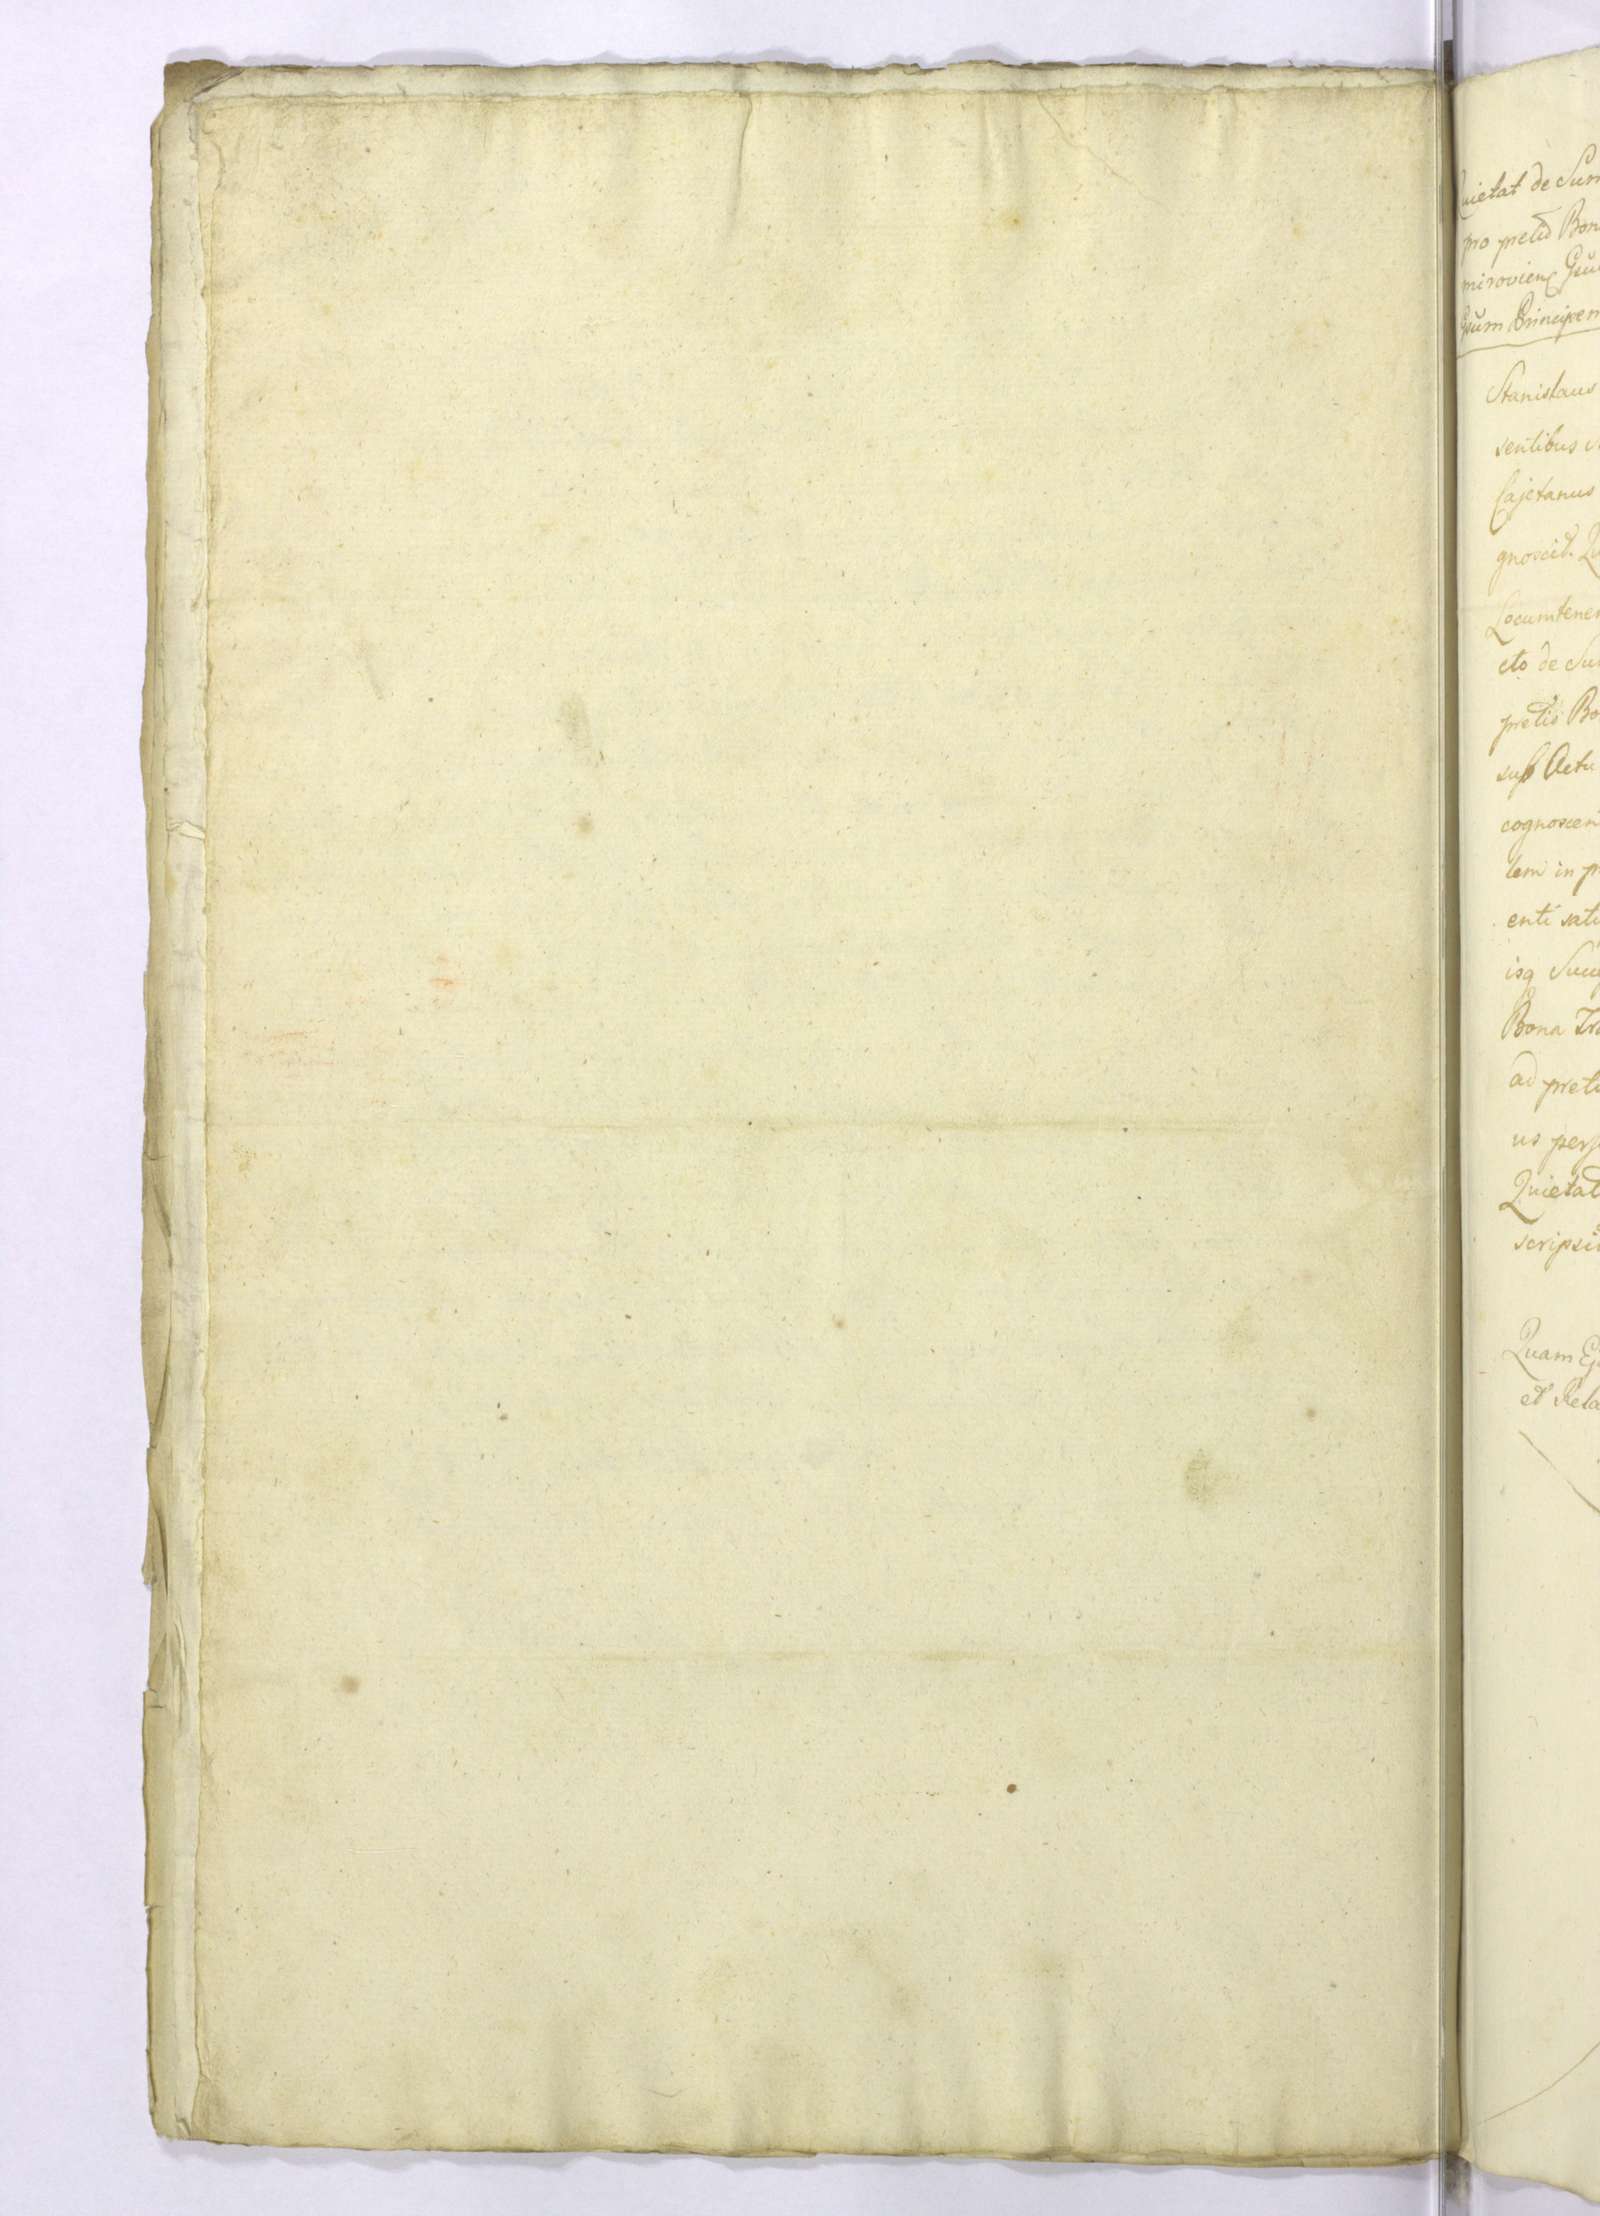 Quietat de Sum
pro pretio Bon
mirovien
Principem
Stanislaus
sentibus
Cajetanus
gnoscit. Qu
Locumtenen
cto de Sum
pretio Bo
sub Actu
cognoscen
lem in p
enti sati
isq Suu
Bona Tra
ad preti
us pers
Quietat
scripsit
Quam Ej
et Rela